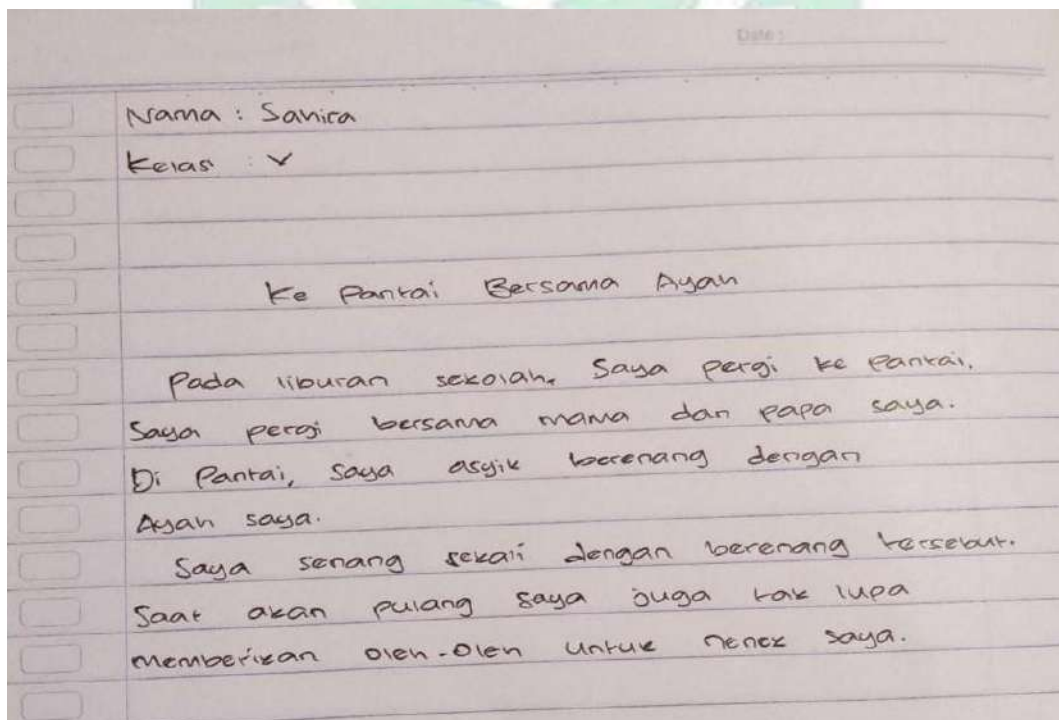 Date :
Nama : Sanira
Kelas : V
Ke Pantai Bersama Ayah
Pada liburan sekolah, Saya pergi ke Pantai.
Saya pergi bersama mama dan papa saya.
Di Pantai, saya asyik berenang dengan
Ayah saya.
Saya senang sekali dengan berenang tersebut.
Saat akan pulang saya juga tak lupa
memberikan oleh-oleh untuk nenek saya.